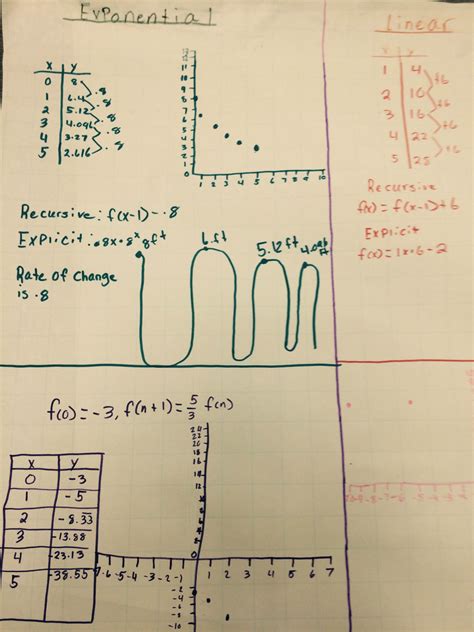 Exponential
x y
0 8
1 6.4
2 5.12
3 4.096
4 3.27
5 2.616
.8
.8
.8
.8
.8
11
10
9
8
7
6
5
4
3
2
1
0
1 2 3 4 5 6 7 8 9 10
Recursive: f(x-1)= .8
Explicit: .8x • 8ˣ
8ft
6.ft
5.12ft
Rate of Change
is .8
Linear
x y
1 4
2 10
3 16
4 22
5 25
+6
+6
+6
+6
Recursive
f(x) = f(x-1)+6
Explicit
f(x) = 1x•6-2
f(0) = -3, f(n+1) = 5/3 f(n)
x y
0 -3
1 -5
2 -8.33
3 -13.88
4 -23.13
5 -38.55
24
22
20
18
16
14
12
10
8
6
4
2
0
-7 -6 -5 -4 -3 -2 -1
1 2 3 4 5 6 7
-2
-4
-6
-8
-10